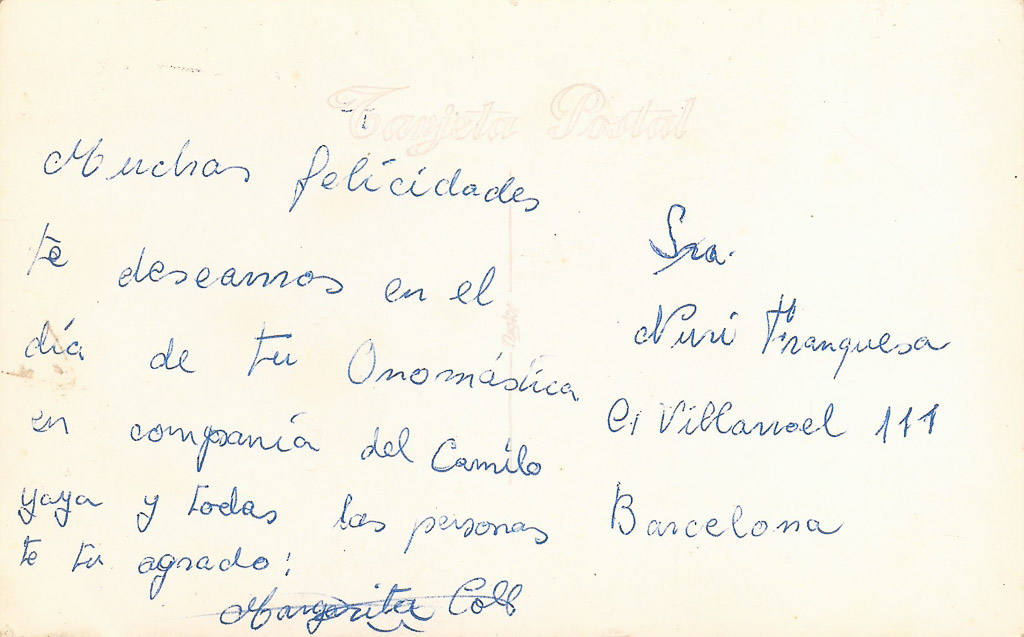 Tarjeta Postal
Muchas felicidades
te deseamos en el
día de tu Onomástica
en compania del Camilo
yaya y todas las personas
te tu agrado!
Margarita Coll
Sra.
Nuri Franquesa
C/ Villarroel 111
Barcelona